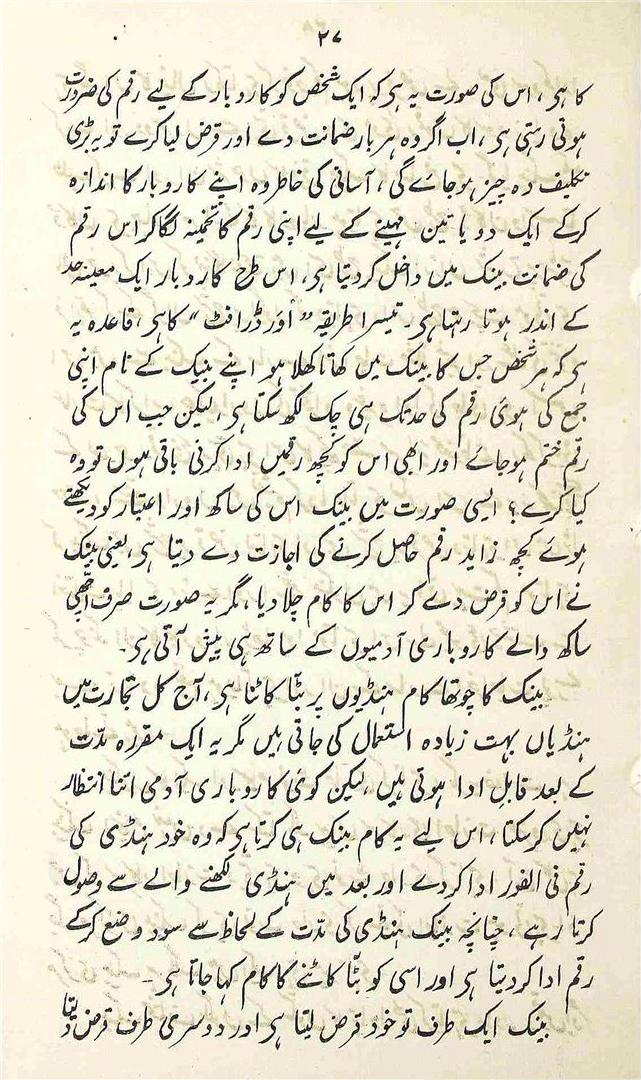 ۲۷
کا ہی، اس کی صورت یہ ہی کہ ایک شخص کو کاروبار کے لیے رقم کی ضرورت
ہوتی رہتی ہی، اب اگر وہ ہر بار ضمانت دے اور قرض لیا کرے تو یہ بڑی
تکلیف دہ چیز ہوجائے گی، آسانی کی خاطر وہ اپنے کاروبار کا اندازہ
کرکے ایک دو یا تین مہینے کے لیے اپنی رقم کا تخمینہ لگا کر اس رقم
کی ضمانت بینک میں داخل کردیتا ہی، اس طرح کاروبار ایک معینہ حد
کے اندر ہوتا رہتا ہی۔ تیسرا طریقہ ”اَور ڈرافٹ“ کا ہی، قاعدہ یہ
ہی کہ ہر شخص جس کا بینک میں کھاتا کھلا ہو اپنے بینک کے نام اپنی
جمع کی ہوئی رقم کی حد تک ہی چک لکھ سکتا ہی، لیکن جب اس کی
رقم ختم ہوجائے اور ابھی اس کو کچھ رقمیں ادا کرنی باقی ہوں تو وہ
کیا کرے؟ ایسی صورت میں بینک اس کی ساکھ اور اعتبار کو دیکھتے
ہوئے کچھ زاید رقم حاصل کرنے کی اجازت دے دیتا ہی، یعنی بینک
نے اس کو قرض دے کر اس کا کام چلا دیا، مگر یہ صورت صرف اچھی
ساکھ والے کاروباری آدمیوں کے ساتھ ہی پیش آتی ہی۔
بینک کا چوتھا کام ہنڈیوں پر بٹّا کاٹنا ہی، آج کل تجارت میں
ہنڈیاں بہت زیادہ استعمال کی جاتی ہیں مگر یہ ایک مقررہ مدّت
کے بعد قابل ادا ہوتی ہیں، لیکن کوئی کاروباری آدمی اتنا انتظار
نہیں کرسکتا، اس لیے یہ کام بینک ہی کرتا ہی کہ وہ خود ہنڈی کی
رقم فی الفور ادا کردے اور بعد میں ہنڈی لکھنے والے سے وصول
کرتا رہے، چنانچہ بینک ہنڈی کی مدّت کے لحاظ سے سود وضع کرکے
رقم ادا کردیتا ہی اور اسی کو بٹّا کاٹنے کا کام کہا جاتا ہی۔
بینک ایک طرف تو خود قرض لیتا ہی اور دوسری طرف قرض دیتا